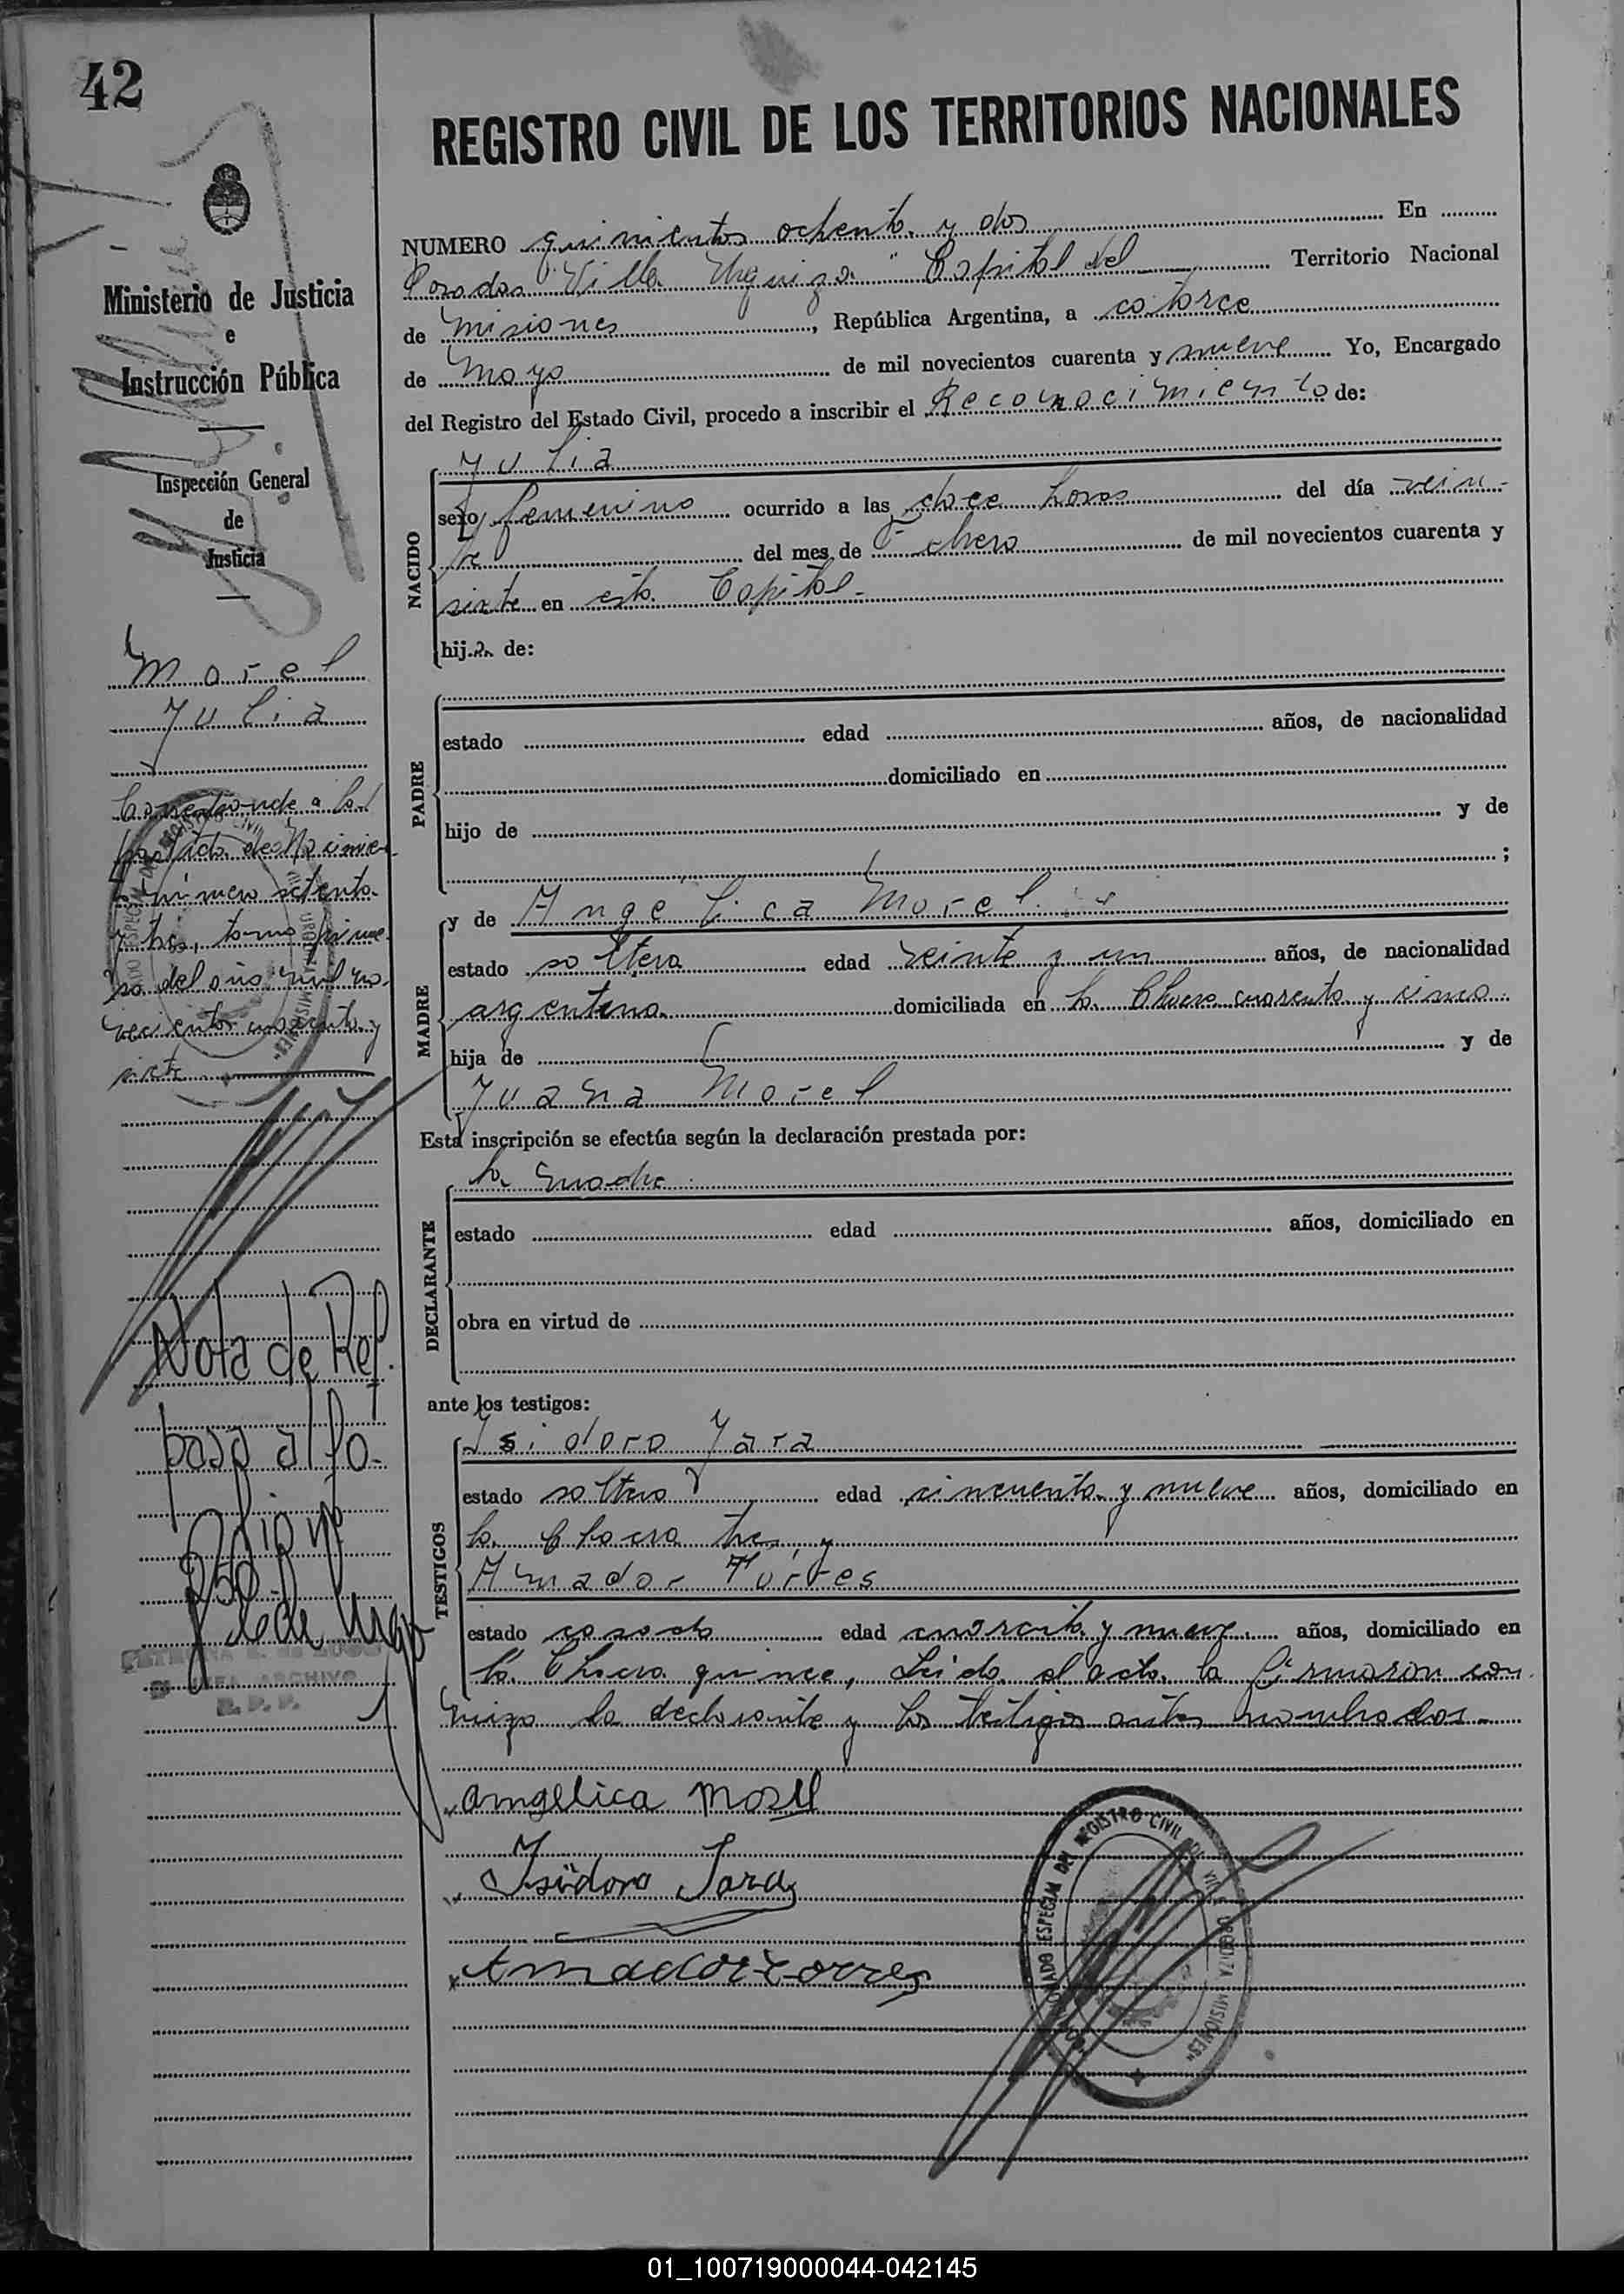 42
REGISTRO CIVIL DE LOS TERRITORIOS NACIONALES
Ministerio de Justicia
e
Instrucción Pública
Inspección General
de
Justicia
Morel
Julia
Corresponde a la
partida de Nacimien
número setenta
y tres, tomo prime
ro del año mil no-
vecientos cuarenta y
siete
Nota de Ref.
pasa al fo-
lio nº
250
CETRINA
DEL ARCHIVO
R. P. P.
NUMERO quinientos ochenta y dos En
Posadas "Villa Urquiza" Capital del Territorio Nacional
de Misiones, República Argentina, a catorce
de Mayo de mil novecientos cuarenta y nueve Yo, Encargado
del Registro del Estado Civil, procedo a inscribir el Reconocimiento de:
NACIDO
Julia
sexo femenino ocurrido a las doce horas del día vein-
te del mes de Febrero de mil novecientos cuarenta y
siete en esta Capital-
hija de:
PADRE
estado edad años, de nacionalidad
domiciliado en
hijo de y de
;
MADRE
y de Angélica Morel
estado soltera edad veinte y un años, de nacionalidad
argentina domiciliada en la Chacra cuarenta y cinco
hija de y de
Juana Morel
Esta inscripción se efectúa según la declaración prestada por:
DECLARANTE
la madre
estado edad años, domiciliado en
obra en virtud de
ante los testigos:
TESTIGOS
Isidoro Jara
estado soltero edad cincuenta y nueve años, domiciliado en
la Chacra tres, y
Amador Torres
estado casado edad cuarenta y nueve años, domiciliado en
la Chacra quince, Leida el acta la firmaron con
migo la declarante y los testigos antes nombrados-
Amgelica Morel
Isidoro Jara
Amador torres
REGISTRO CIVIL DE VILLA URQUIZA "MISIONES"
01_100719000044-042145